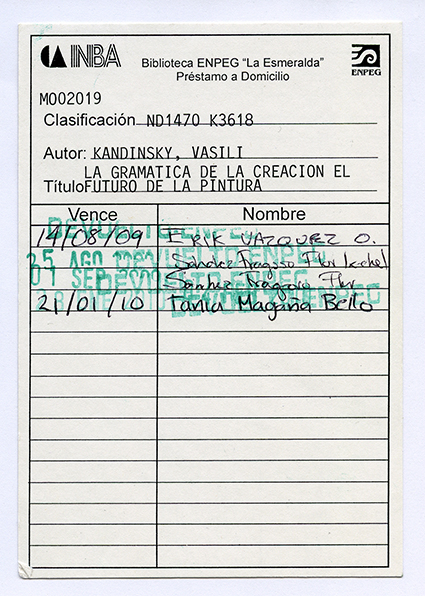 INBA
Biblioteca ENPEG "La Esmeralda"
Préstamo a Domicilio
ENPEG
M002019
Clasificación ND1470 K3618
Autor: KANDINSKY, VASILI
LA GRAMATICA DE LA CREACION EL
Título FUTURO DE LA PINTURA
Vence Nombre
DEVUELTO ENPEG
14/08/09 ERIK VAZQUEZ O.
25 AGO DEVUELTO ENPEG Sánchez Fragoso Flor
01 SEP DEVUELTO ENPEG Sánchez Fragoso Flor
DEVUELTO ENPEG
21/01/10 Tania Magaña Bello